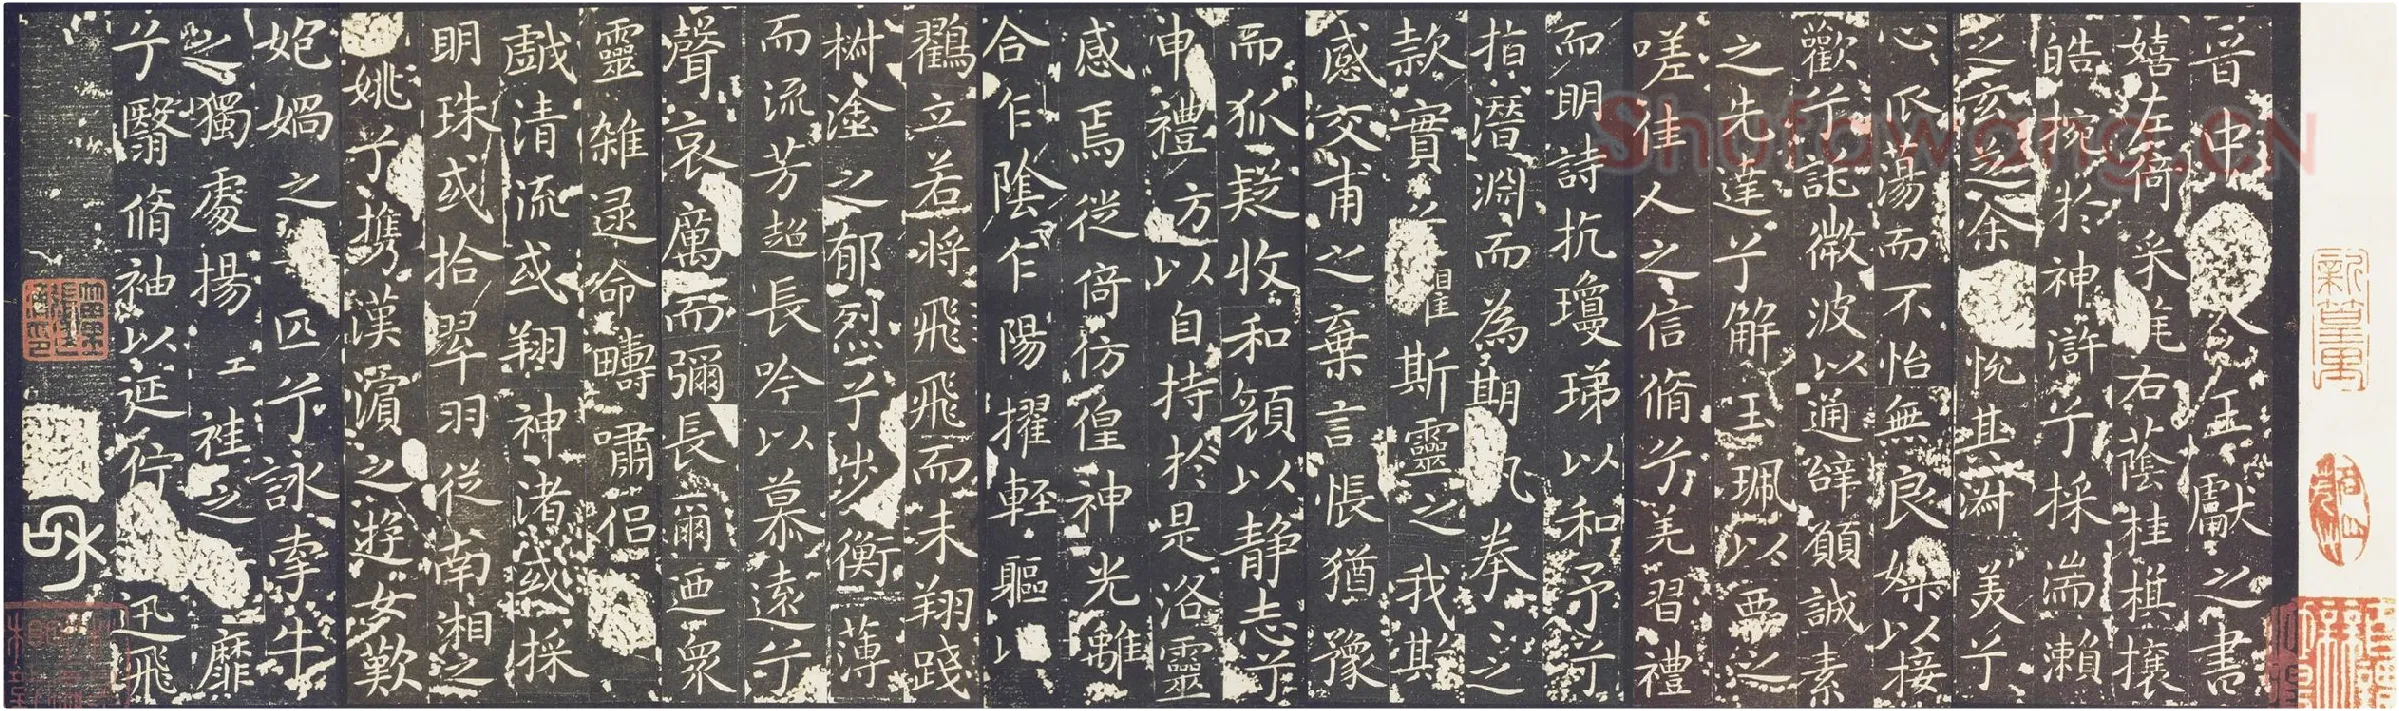 晋中令王獻之書
嬉左倚采旄右蔭桂棋攘
皓捥於神滸兮採湍瀨
之玄芝余悅其淋美兮
心爪蕩而不怡無良媒以接
歡兮託微波以通辭願誠素
之先達兮解玉珮以要之
嗟佳人之信脩兮羌習禮
而明詩抗瓊珶以和予兮
指潛淵而為期執拳之
款實兮懼斯靈之我欺
感交甫之棄言悵猶豫
而狐疑收和顏以静志兮
申禮方以自持於是洛靈
感焉徙倚彷徨神光離
合乍陰乍陽擢輕軀以
鸛立若将飛飛而未翔踐
樹塗之郁烈兮步衡薄
而流芳超長吟以慕遠兮
聲哀厲而彌長爾迺衆
靈雜逯命疇嘯侶
戲清流或翔神渚或採
明珠或拾翠羽從南湘之
姚兮攜漢濱之遊女歎
妃媧之匹兮詠牽牛
之獨處揚袿之靡
兮翳脩袖以延佇迅飛
Shufawang.CN